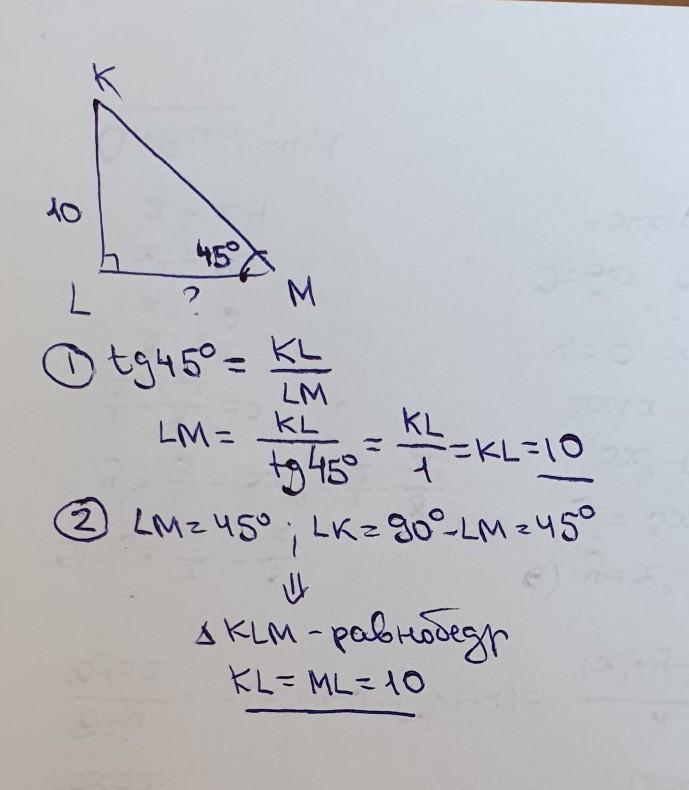 K
10
45°
L ? M
① tg45° = KL/LM
LM = KL/tg45° = KL/1 = KL = 10
② ∠M = 45° ; ∠K = 90° - ∠M = 45°
⇓
△ KLM - равнобедр
KL = ML = 10